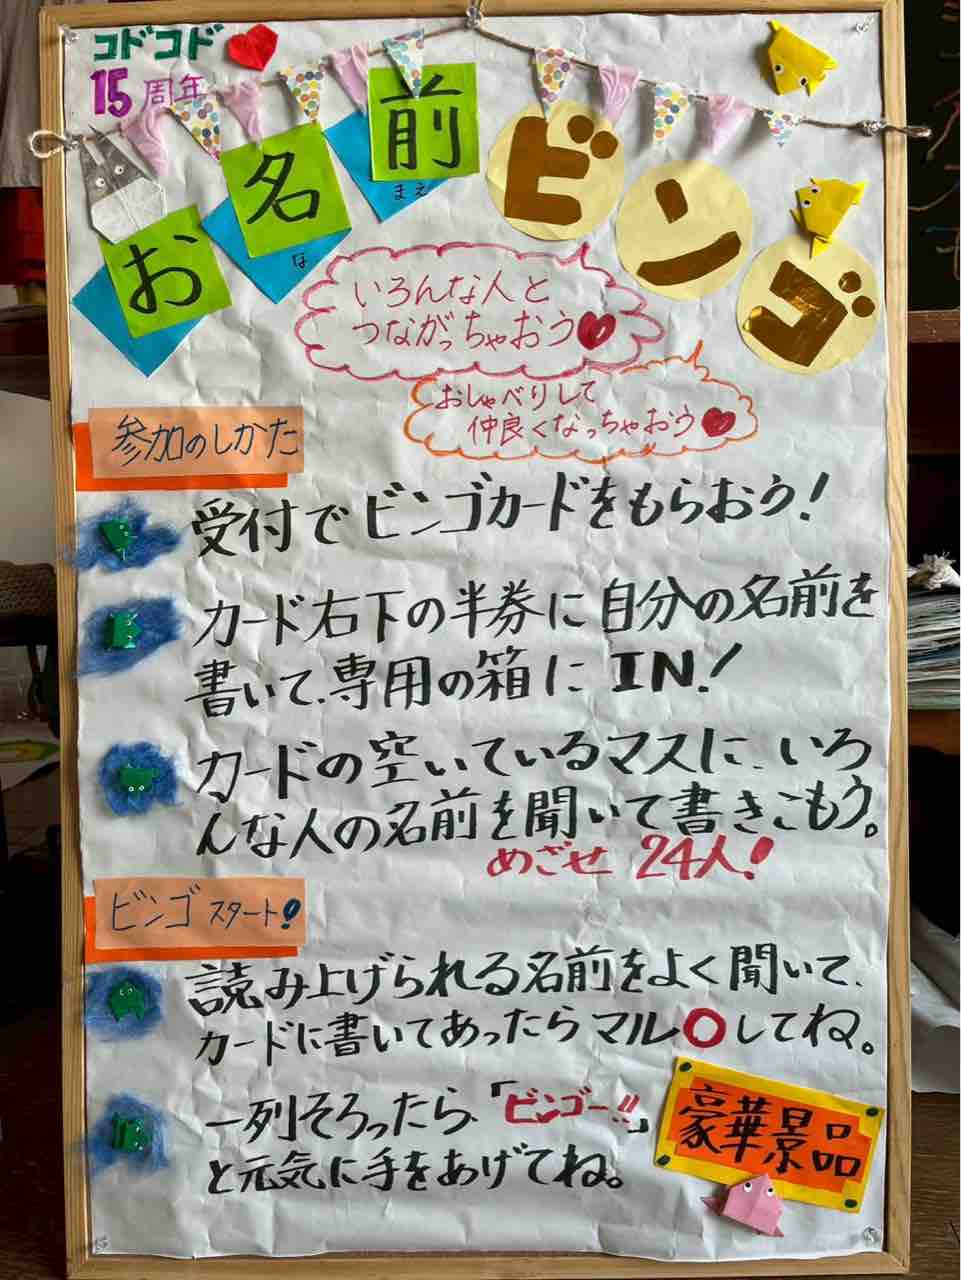 コドコド
15周年
お名前ビンゴ
な
まえ
いろんな人と
つながっちゃおう
おしゃべりして
仲良くなっちゃおう
参加のしかた
受付でビンゴカードをもらおう!
カード右下の半券に自分の名前を
書いて、専用の箱にIN!
カードの空いているマスに、いろ
んな人の名前を聞いて書きこもう。
めざせ 24人!
ビンゴスタート!
読み上げられる名前をよく聞いて、
カードに書いてあったらマル〇してね。
一列そろったら、「ビンゴー!!」
と元気に手をあげてね。
豪華景品